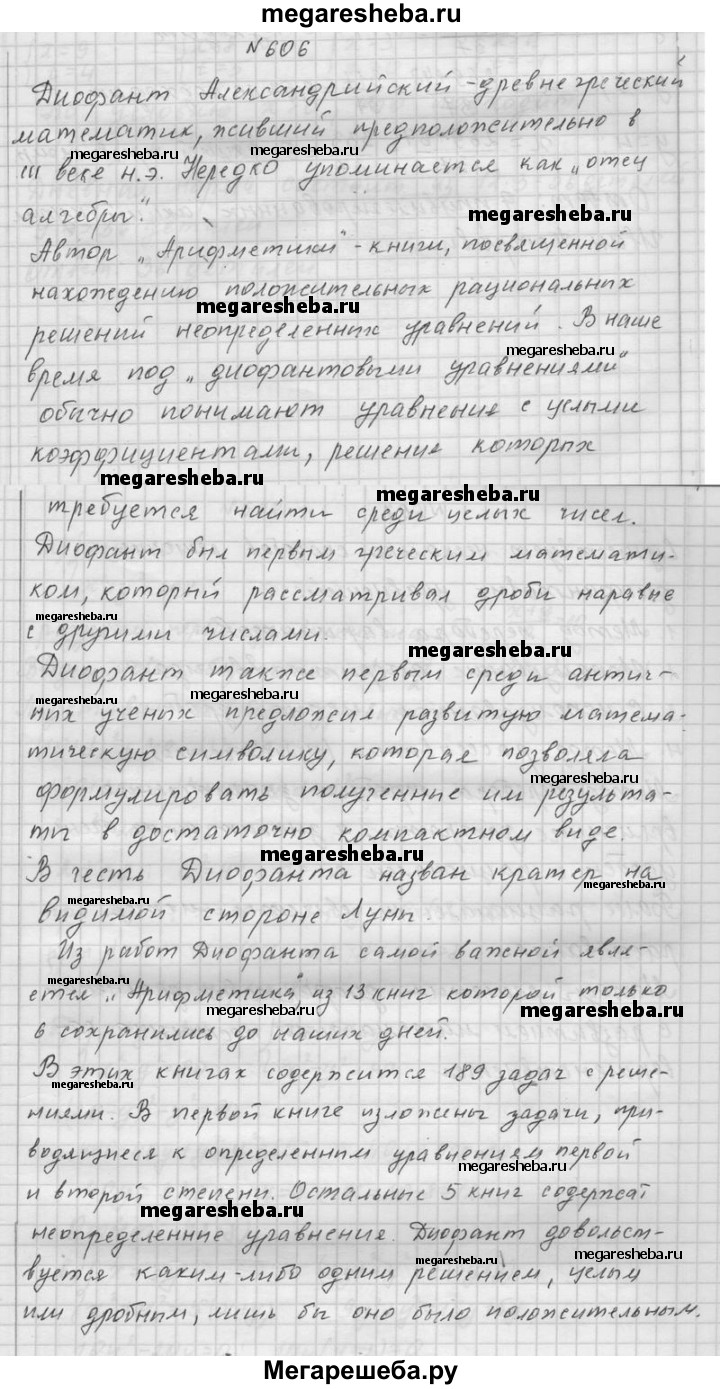 megaresheba.ru
№606
Диофант Александрийский - древнегреческий
математик, живший предположительно в
megaresheba.ru megaresheba.ru
III веке н.э. Нередко упоминается как „отец
алгебры".
megaresheba.ru
Автор „Арифметики" - книги, посвященной
нахождению положительных рациональных
megaresheba.ru
решений неопределенных уравнений. В наше
megaresheba.ru
время под „диофантовыми уравнениями"
обычно понимают уравнения с целыми
коэффициентами, решения которых
megaresheba.ru
megaresheba.ru
требуется найти среди целых чисел.
Диофант был первым греческим математи-
ком, который рассматривал дроби наравне
megaresheba.ru
с другими числами.
megaresheba.ru
Диофант также первым среди антич-
megaresheba.ru megaresheba.ru
ных ученых предложил развитую матема-
тическую символику, которая позволяла
megaresheba.ru
формулировать полученные им результа-
ты в достаточно компактном виде.
megaresheba.ru
В честь Диофанта назван кратер на
megaresheba.ru
megaresheba.ru
видимой стороне Луны
Из работ Диофанта самой важной явля-
megaresheba.ru
ется „Арифметика", из 13 книг которой только
megaresheba.ru
6 сохранились до наших дней.
В этих книгах содержится 189 задач с реше-
megaresheba.ru
ниями. В первой книге изложены задачи, при-
водящиеся к определенным уравнениям первой
megaresheba.ru
и второй степени. Остальные 5 книг содержат
megaresheba.ru
неопределенные уравнения. Диофант довольст-
megaresheba.ru
вуется каким-либо одним решением, целым
или дробным, лишь бы оно было положительным.
Мегарешеба.ру